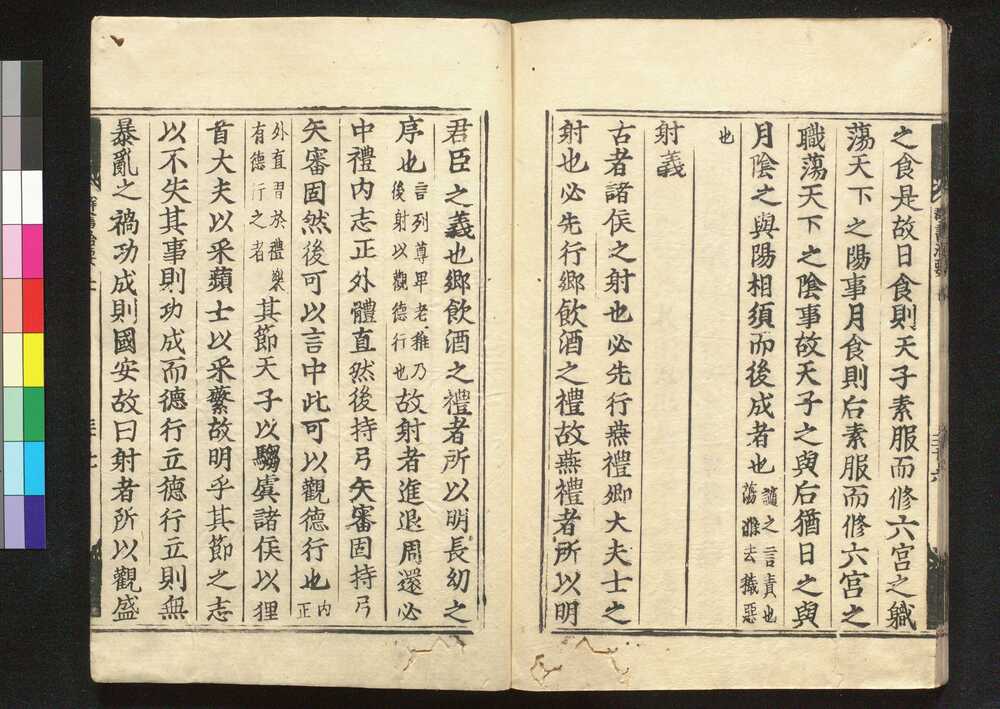 之食是故日食則天子素服而修六宮之軄
蕩天下之陽事月食則后素服而修六宮之
職蕩天下之陰事故天子之與后猶日之與
月陰之與陽相須而後成者也謫之言責也蕩滌去穢惡
也
射義
古者諸侯之射也必先行燕禮卿大夫士之
射也必先行鄉飲酒之禮故燕禮者所以明
君臣之義也鄉飲酒之禮者所以明長幼之
序也言列尊卑老稚乃後射以觀德行也故射者進退周還必
中禮內志正外體直然後持弓矢審固持弓
矢審固然後可以言中此可以觀德行也內正
外直習於禮樂有德行之者其節天子以騶虞諸侯以狸
首大夫以采蘋士以采蘩故明乎其節之志
以不失其事則功成而德行立德行立則無
暴亂之禍功成則國安故曰射者所以觀盛